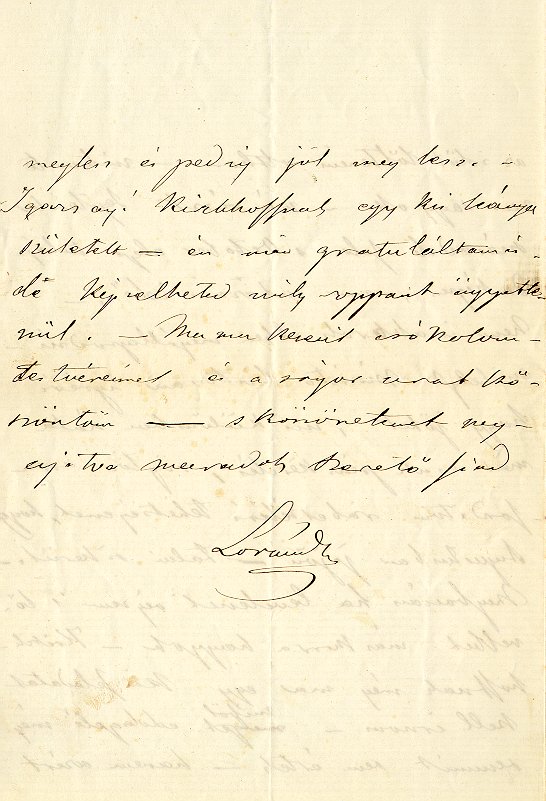 meglesz és pedig jól meg lesz. –
Igaz ay! Kirchhoffnak egy kis leánya
született – én már gratuláltam is –
de képzelheted mily roppant ügyetle-
nül. – Mama kezeit csókolom –
testvéreimet és a sógor urat kö-
szöntöm — s köszönetemet nyj-
ujtva maradok szerető fiad
Loránd